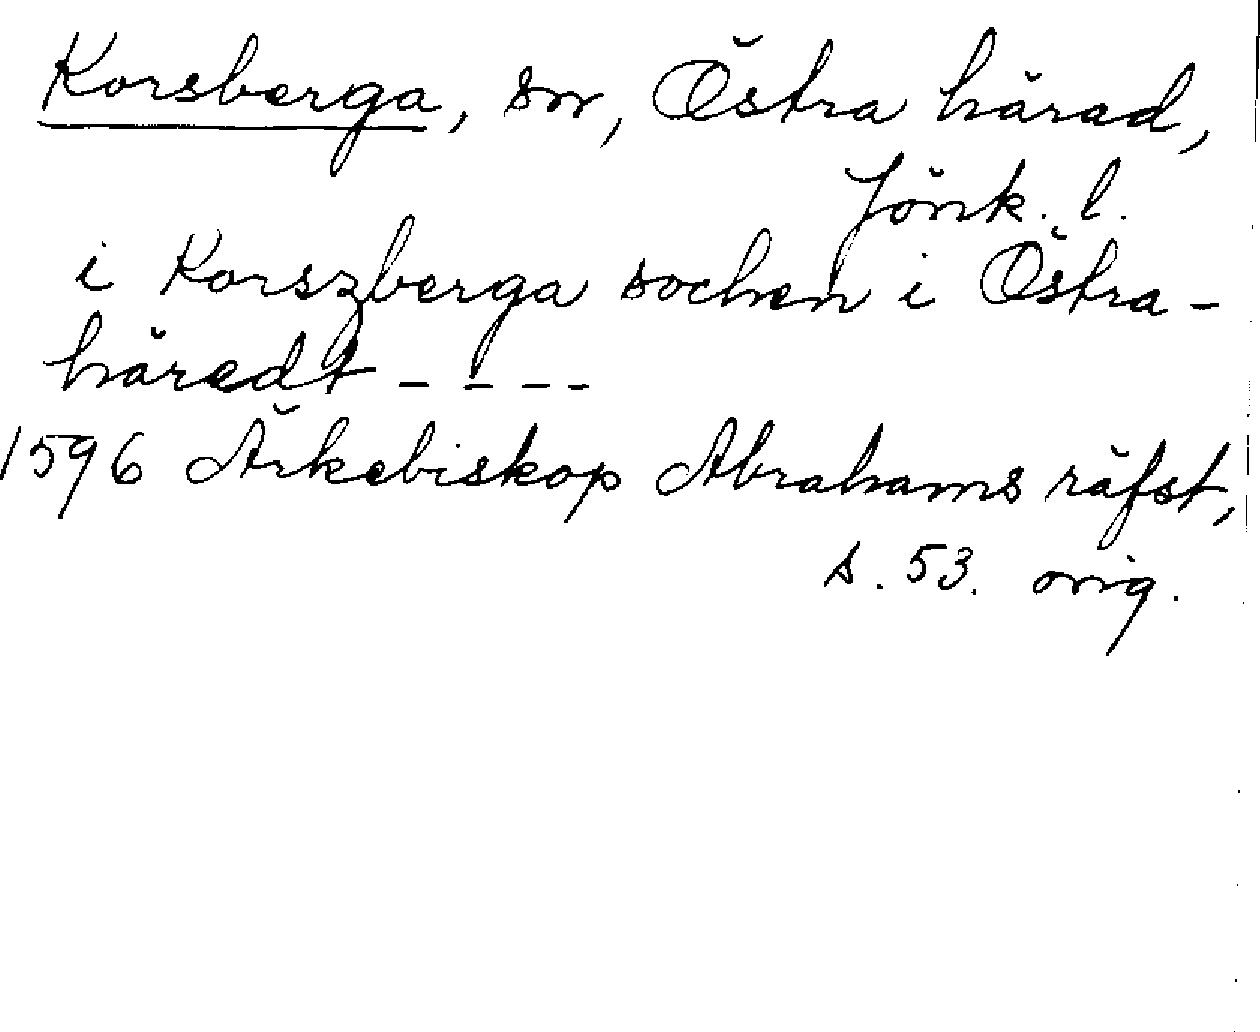 Korsberga, sn, Östra härad,
Jönk. l.
i Korszberga sochen i Östra-
häredt - - - -
1596 Ärkebiskop Abrahams räfst,
s. 53. orig.